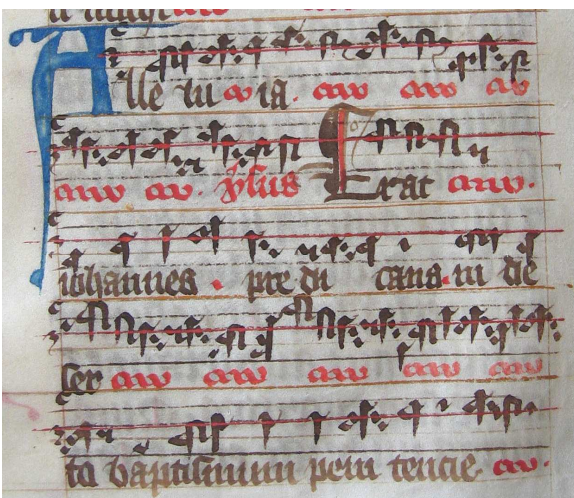 Alle lu ia.
v̄sus Erat
iohannes . pre di cans . in de
ser
to baptismum peni tencie.